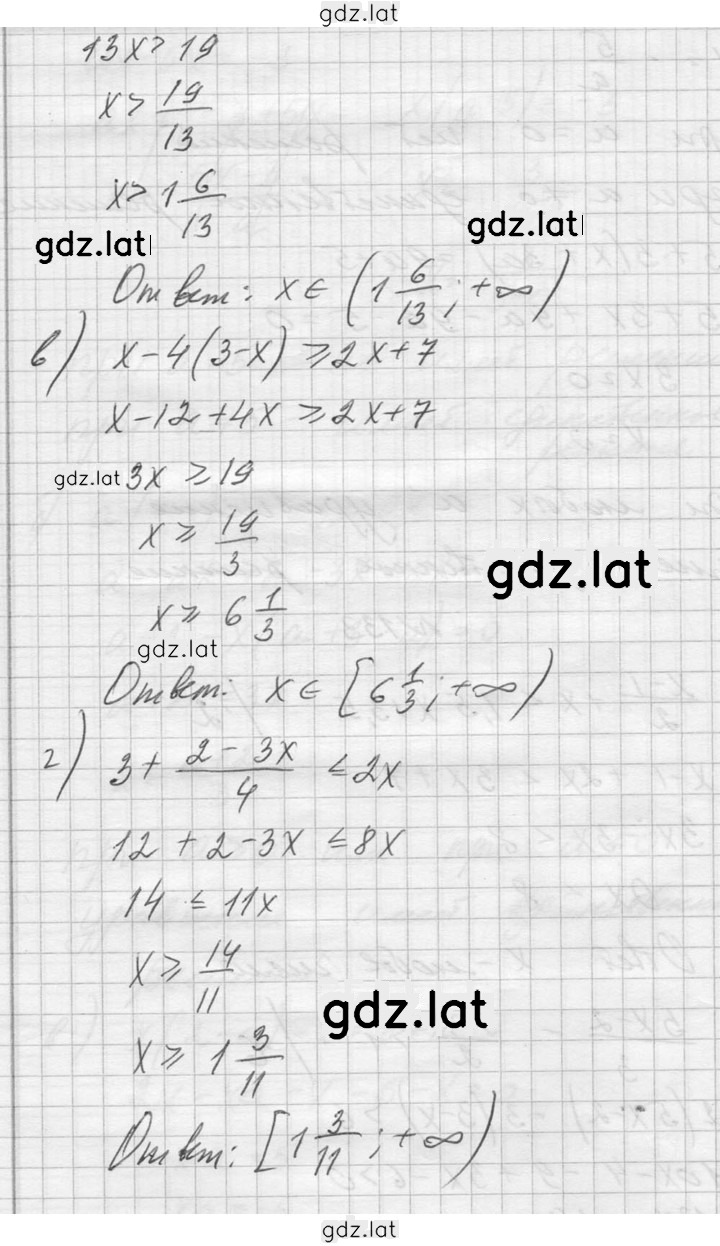 gdz.lat
13x > 19
x > 19/13
x > 1 6/13
gdz.lat
gdz.lat
Ответ: x ∈ (1 6/13; +∞)
в) x - 4(3 - x) ⩾ 2x + 7
x - 12 + 4x ⩾ 2x + 7
gdz.lat 3x ⩾ 19
x ⩾ 19/3
gdz.lat
x ⩾ 6 1/3
gdz.lat
Ответ: x ∈ [6 1/3; +∞)
г) 3 + (2 - 3x)/4 ⩽ 2x
12 + 2 - 3x ⩽ 8x
14 ⩽ 11x
x ⩾ 14/11
gdz.lat
x ⩾ 1 3/11
Ответ: [1 3/11; +∞)
gdz.lat